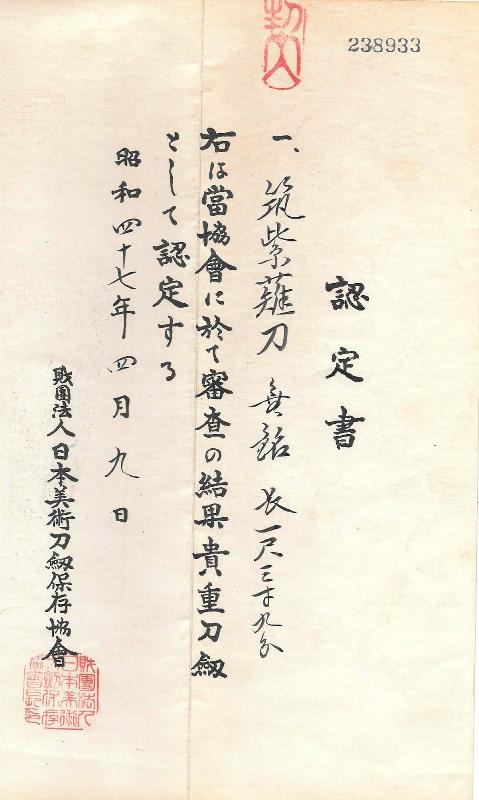 238933
認定書
一、筑紫薙刀 無銘 長一尺三寸九分
右は當協會に於て審査の結果貴重刀劔
として認定する
昭和四十七年四月九日
財團法人日本美術刀劔保存協會